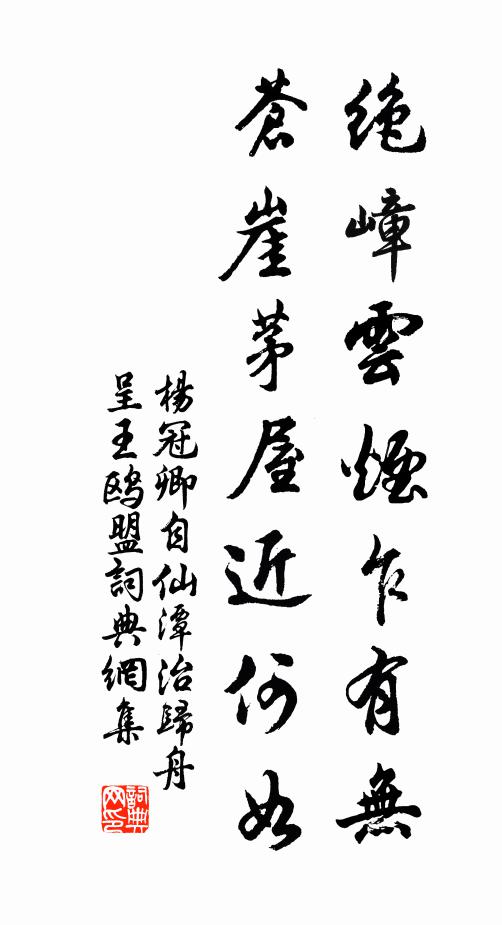 絶嶂雲煙乍有無
蒼崖茅屋近何如
楊冠卿自仙潭治歸舟
呈王鷗盟詞典網集
詞典网印